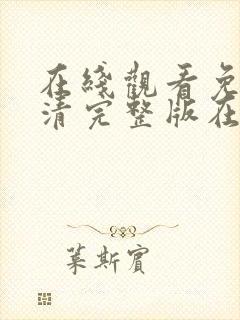 在綫觀看免
清完整版在
萊斯賓